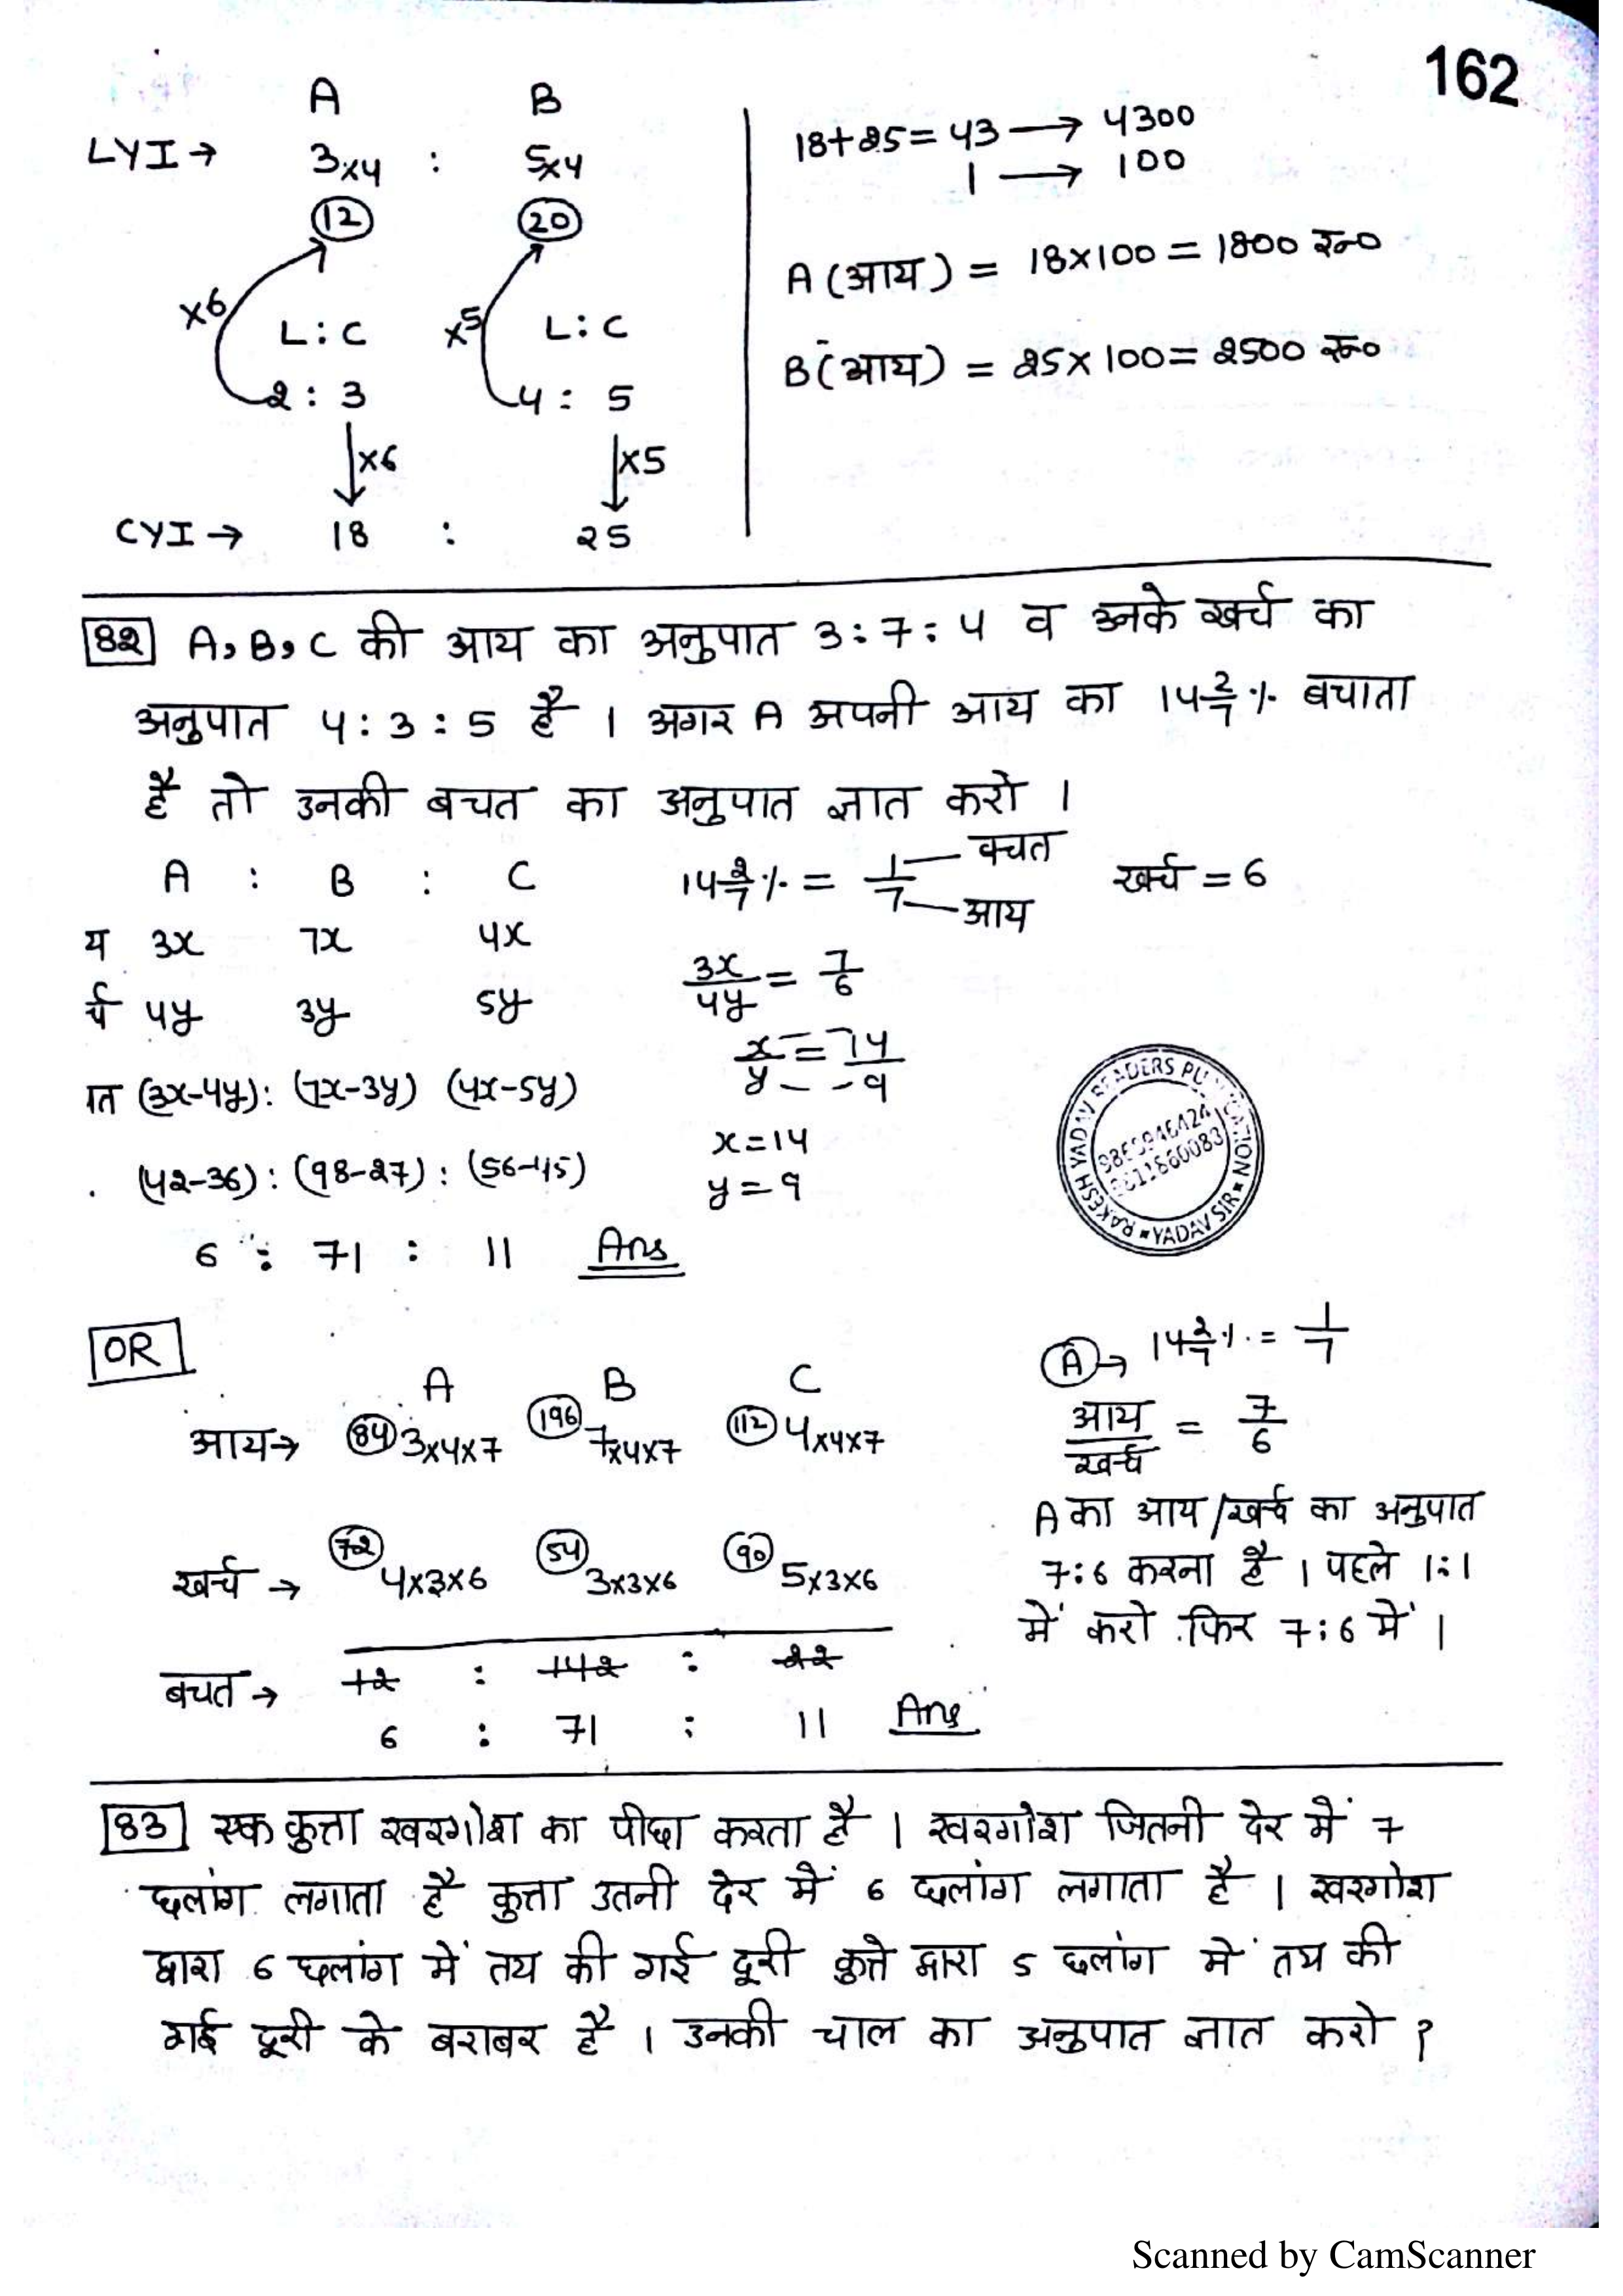 162
A B
LYI → 3x4 : 5x4
12 20
x6 L:C x5 L:C
2:3 4:5
x6 x5
CYI → 18 : 25
18+25=43 → 4300
1 → 100
A (आय) = 18x100 = 1800 रु०
B (आय) = 25x100= 2500 रु०
82 A, B, C की आय का अनुपात 3:7:4 व उनके खर्च का
अनुपात 4:3:5 है । अगर A अपनी आय का 14 2/7 % बचाता
है तो उनकी बचत का अनुपात ज्ञात करो ।
A : B : C
य 3x 7x 4x
र्च 4y 3y 5y
त (3x-4y): (7x-3y) (4x-5y)
(42-36) : (98-27) : (56-45)
6 : 71 : 11 Ans
14 2/7 % = 1/7 बचत आय खर्च = 6
3x/4y = 7/6
x/y = 14/9
x=14
y=9
RAKESH YADAV READERS PUBLICATION
YADAV SIR
OR
A B C
आय→ 84 3x4x7 196 7x4x7 112 4x4x7
खर्च → 72 4x3x6 54 3x3x6 90 5x3x6
बचत → 12 : 142 : 22
6 : 71 : 11 Ans
A → 14 2/7 % = 1/7
आय/खर्च = 7/6
A का आय/खर्च का अनुपात
7:6 करना है । पहले 1:1
में करो फिर 7:6 में ।
83 एक कुत्ता खरगोश का पीछा करता है । खरगोश जितनी देर में 7
छलांग लगाता है कुत्ता उतनी देर में 6 छलांग लगाता है । खरगोश
द्वारा 6 छलांग में तय की गई दूरी कुत्ते द्वारा 5 छलांग में तय की
गई दूरी के बराबर है । उनकी चाल का अनुपात ज्ञात करो ?
Scanned by CamScanner